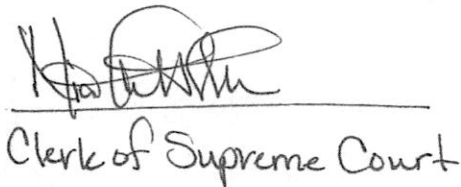 Clerk of Supreme Court